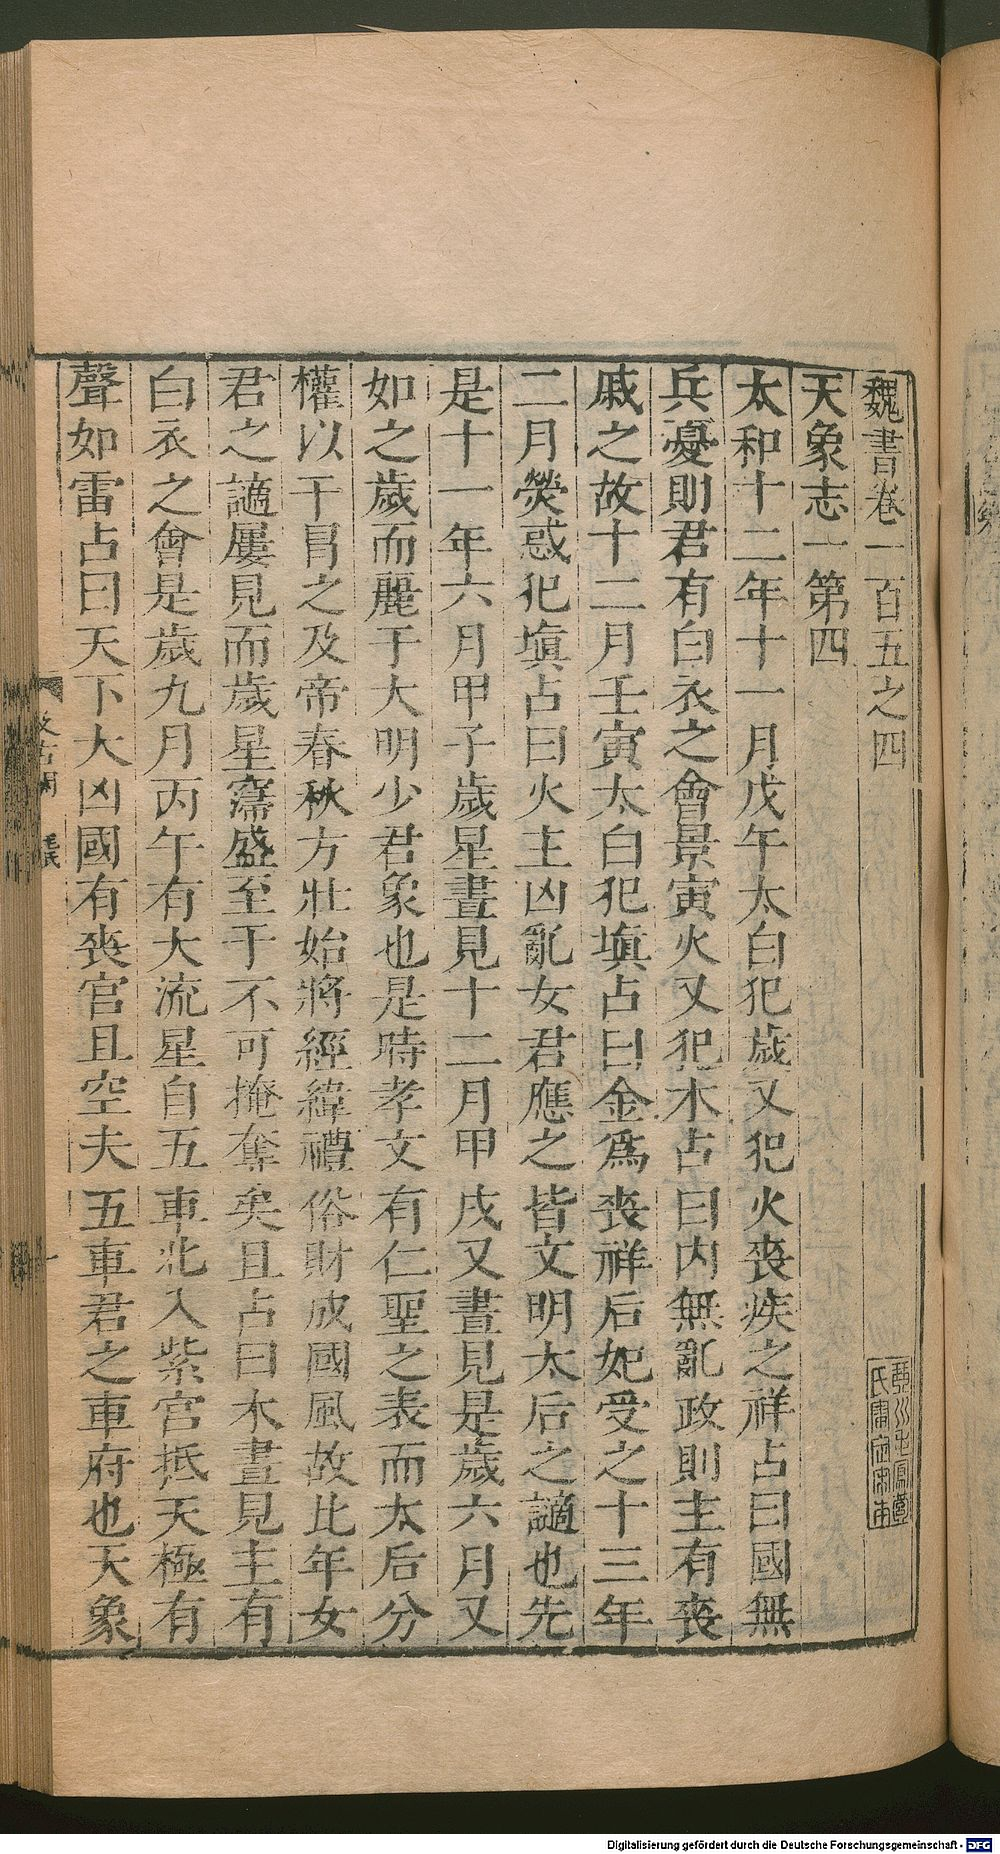 魏書卷一百五之四
天象志一第四
太和十二年十一月戊午太白犯歲又犯火喪疾之祥占曰國無
兵憂則君有白衣之會景寅火又犯木占曰內無亂政則主有喪
戚之故十二月壬寅太白犯塡占曰金爲喪祥后妃受之十三年
二月熒惑犯塡占曰火主凶亂女君應之皆文明太后之謫也先
是十一年六月甲子歲星晝見十二月甲戌又晝見是歲六月又
如之歲而麗于大明少君象也是時孝文有仁聖之表而太后分
權以干冐之及帝春秋方壯始將經緯禮俗財成國風故比年女
君之謫屢見而歲星寖盛至于不可掩奪矣且占曰木晝見主有
白衣之會是歲九月丙午有大流星自五車北入紫宮抵天極有
聲如雷占曰天下大凶國有喪宮且空夫五車君之車府也天象
毛氏
Digitalisierung gefördert durch die Deutsche Forschungsgemeinschaft - DFG